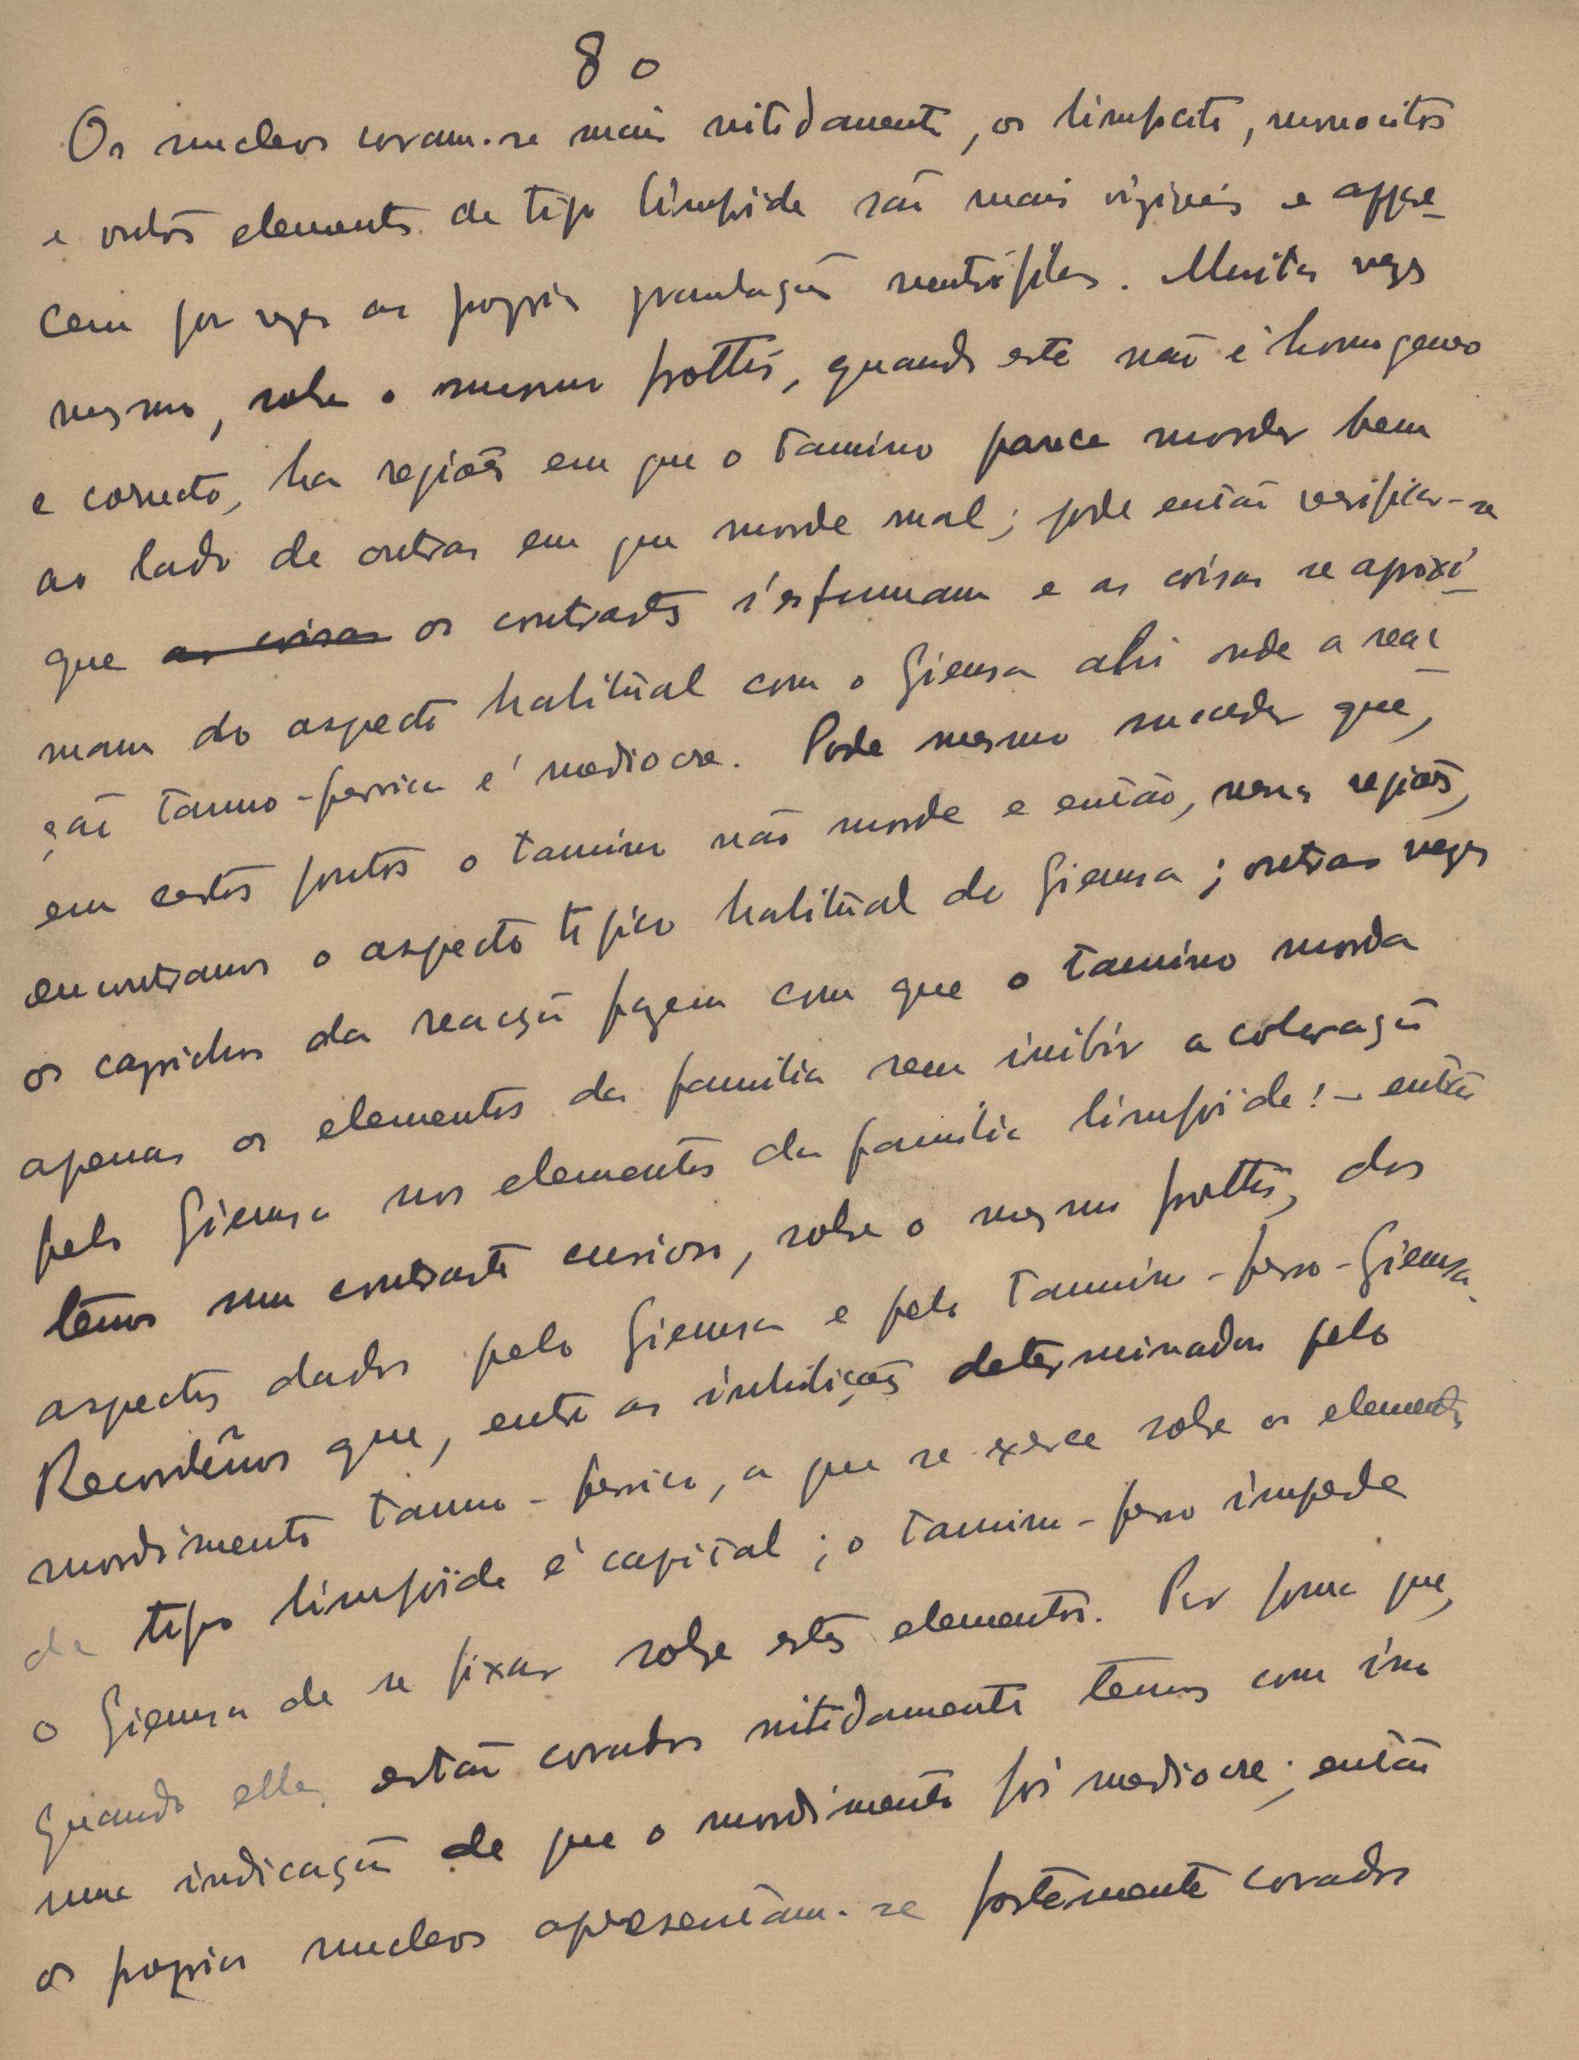 80
Os nucleos coram-se mais nitidamente, os limfocitos, monocitos
e outros elementos de tipo limfoide são mais viziveis e appare-
cem por vezes as proprias granulações neutrófilas. Muitas vezes
mesmo, sobre o mesmo frottis, quando este não é homogeneo
e correcto, ha regiões em que o tanino parece morder bem
ao lado de outras em que morde mal; pode então verificar-se
que as coisas os contrastes s'esfumam e as coisas se aproxi-
mam do aspecto habitual com o Giemsa ahi onde a reac-
ção tanno-ferrica é mediocre. Pode mesmo succeder que,
em certos pontos o tanino não morde e então, nessas regiões,
encontramos o aspecto tipico habitual do Giemsa; outras vezes
os caprichos da reacção fazem com que o tanino morda
apenas os elementos da familia sem inibir a coloração
pelo Giemsa nos elementos da familia limfoide! - então
temos um contraste curioso, sobre o mesmo frottis, dos
aspectos dados pelo Giemsa e pelo tanino-ferro-Giemsa.
Recordêmos que, entre as inhibições determinadas pelo
mordimento tanno-ferrico, a que se exerce sobre os elementos
de tipo limfoide é capital; o tanino-ferro impede
o Giemsa de se fixar sobre estes elementos. Por forma que,
quando elles estão corados nitidamente temos com isso
uma indicação de que o mordimento foi mediocre; então
os proprios nucleos apresentam-se fortemente corados